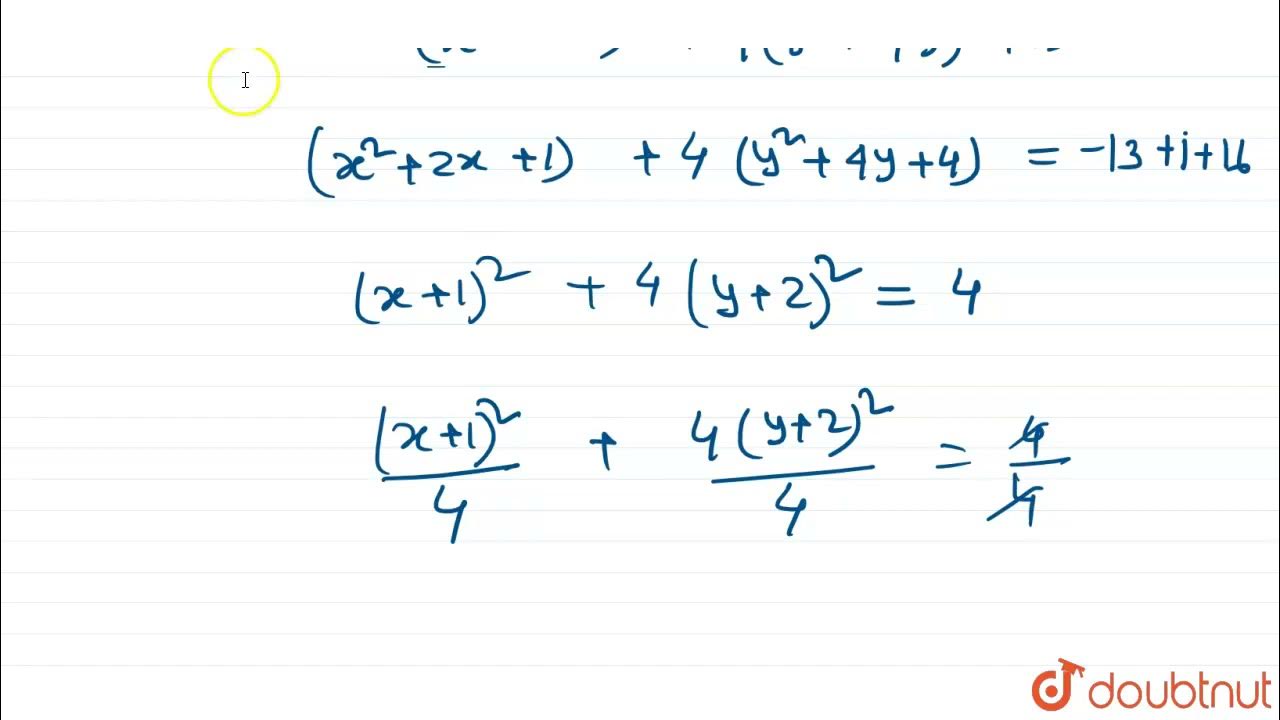 (x²+2x+1) + 4(y²+4y+4) = -13+1+16
(x+1)² + 4(y+2)² = 4
(x+1)²/4 + 4(y+2)²/4 = 4/4
doubtnut